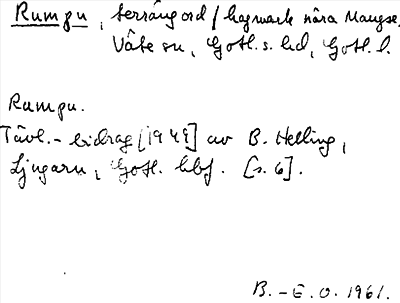 Rumpu, terrängord/hagmark nära Mangse,
Väte sn, Gotl. s. hd, Gotl. l.
Rumpu.
Tävl.-bidrag [1949] av B. Helling,
Ljugarn, Gotl. hbf. [s. 6].
B.-E. O. 1961.